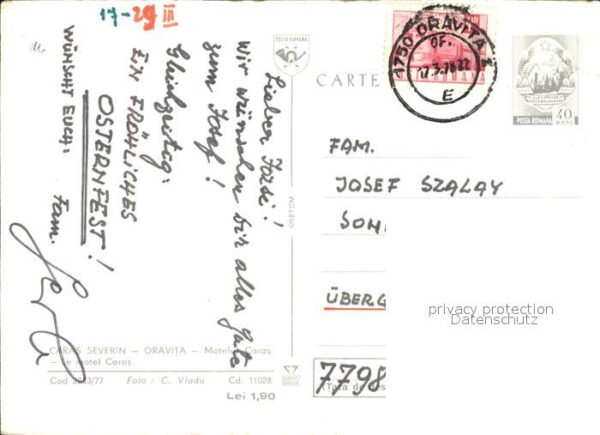 17-29 III
Lieber Joschi!
Wir wünschen dir alles Gute
zum Josef!
Gleichzeitig:
EIN FRÖHLICHES
OSTERNFEST!
WÜNSCHT EUCH:
Fam.
POSTA ROMANA
OSETOM
CARAȘ SEVERIN – ORAVIȚA – Motelul Caraș
– Le motel Caraș.
Foto : C. Vladu
Cd. 11028
Lei 1,90
CARTE
1750-ORAVITA 1
OF.
17.3.78.22
E
POSTA ROMANA
40
BANI
FAM.
JOSEF SZALAY
SON
ÜBERG
privacy protection
Datenschutz
7798